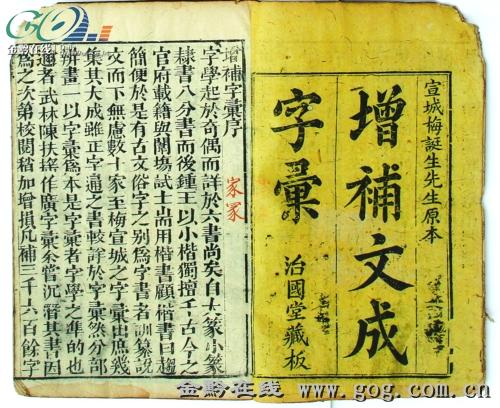 宣城梅誕生先生原本
增補文成
字彙
治國堂藏板
增補字彙序
家冢
字學起於奇偶而詳於六書尚矣自大篆小篆
隸書八分書而後鍾王以小楷獨擅千古今之
官府載籍與闈場試士尚用楷書顧楷書日趨
簡便於是有古文俗字之别為字書者訓纂說
文而下無慮數十家至梅宣城之字彙出庶幾
集其大成雖正字通之書較詳於字彙然分部
辨畫一以字彙爲本是字彙者字學之凖的也
邇者武林陳扶搖作廣字彙叅嘗沉酣其書因
爲之次第校閱稍加增損凡補三千六百餘字
GOG
金黔在线
金黔在线 www.gog.com.cn